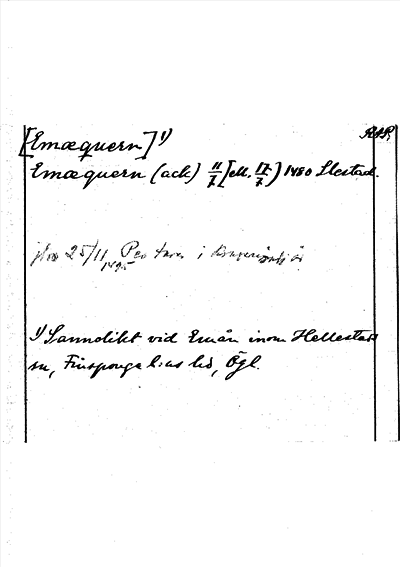 [Emæquern] 1)
RAP.
Emæquern (ack) 11/7 [ell. 17/7) 1480 Llestad.
25/11 1495 Per i
1) Sannolikt vid Emån inom Hellestads
sn, Finsponga l:ns hd, Ögl.